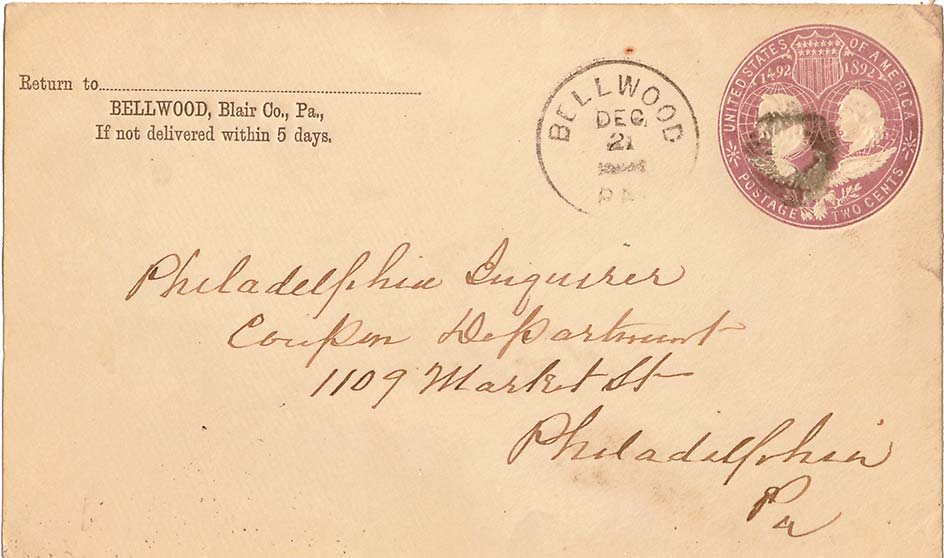 Return to
BELLWOOD, Blair Co., Pa.,
If not delivered within 5 days.
BELLWOOD
DEC
21
PA
UNITED STATES OF AMERICA
1492 1892
POSTAGE TWO CENTS
Philadelphia Inquirer
Coupon Department
1109 Market St
Philadelphia
Pa